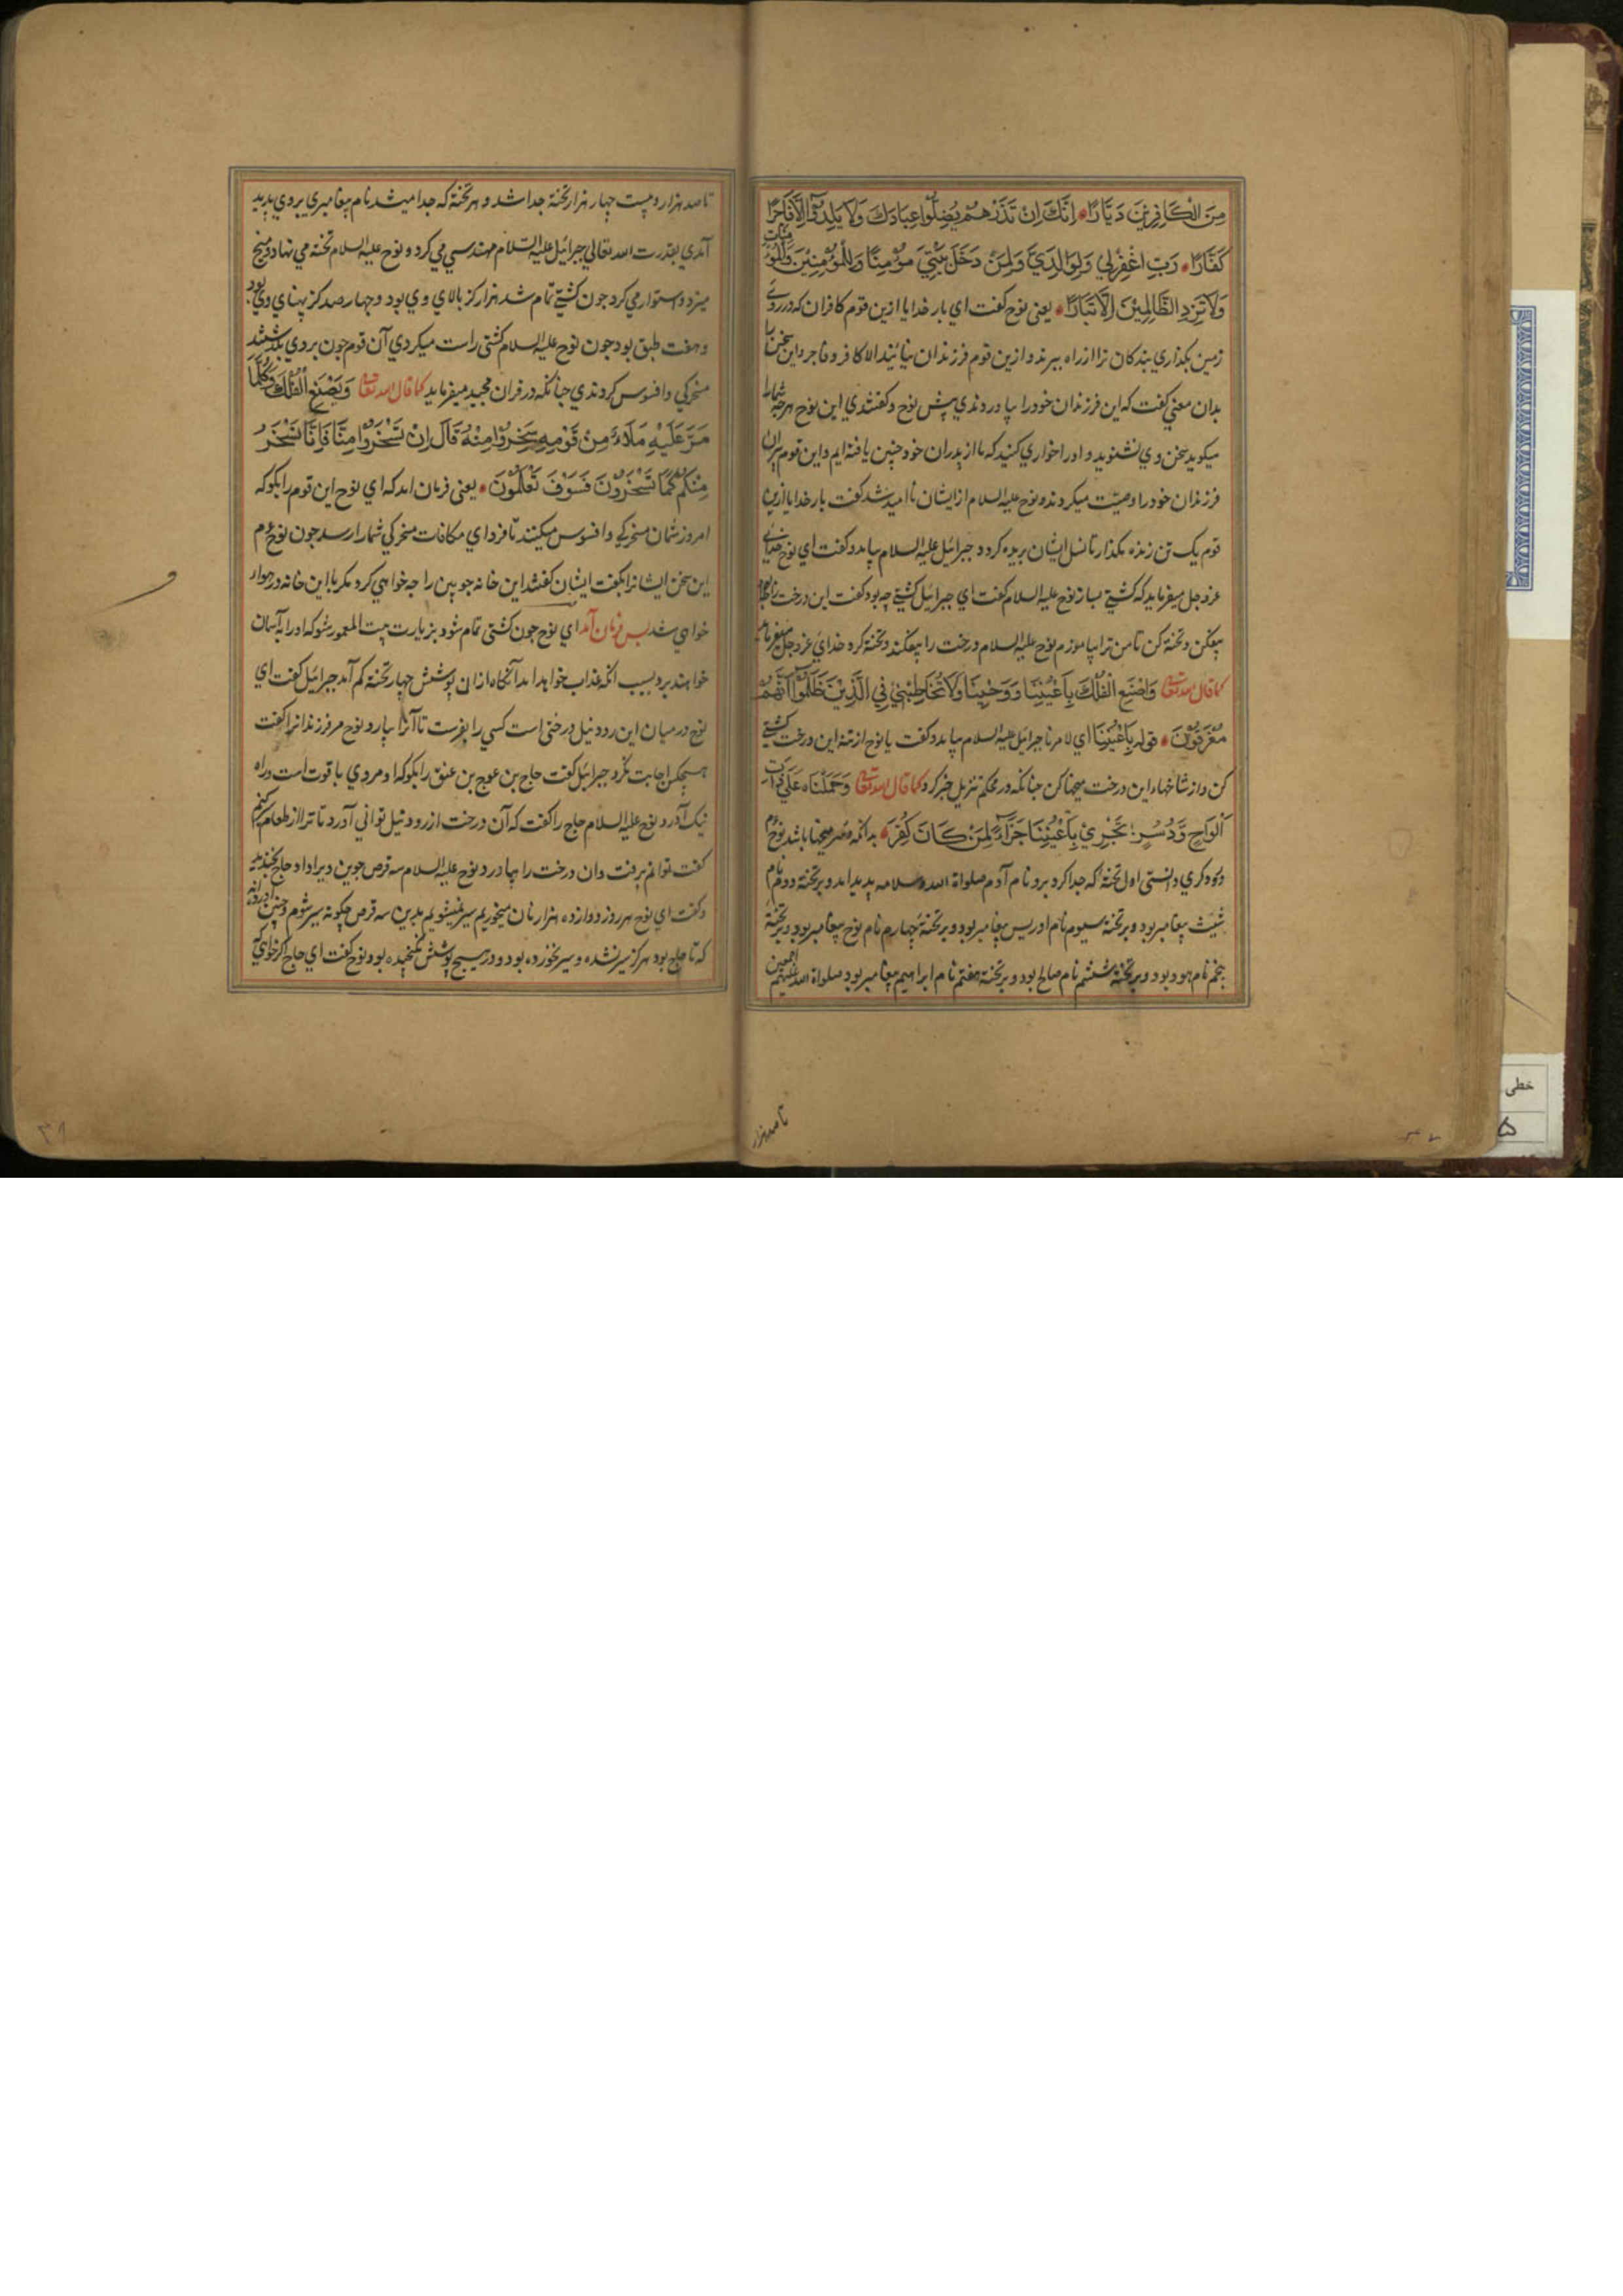 مِنَ الْكَافِرِيْنَ دَيَّارًا اِنَّكَ اِنْ تَذَرْهُمْ يُضِلُّوا عِبَادَكَ وَلَا يَلِدُوْا اِلَّا فَاجِرًا
كَفَّارًا رَبِّ اغْفِرْلِي وَلِوَالِدَيَّ وَلِمَنْ دَخَلَ بَيْتِيَ مُؤْمِنًا وَلِلْمُؤْمِنِيْنَ وَالْمُؤْمِنَاتِ
وَلَا تَزِدِ الظَّالِمِيْنَ اِلَّا تَبَارًا يعنى نوح كفت اي بار خدايا ازين قوم كافران كه در روي
زمين بكذاري بندكان ترا از راه ببرند و ازين قوم فرزندان نيايند الا كافر و فاجر و اين سخن را
بدان معني كفت كه اين فرزندان خود را بياوردندي پيش نوح و كفتندي اين نوح هرچه شمارا
ميكويد سخن وي نشنويد و او را خواري كنيد كه ما از پدران خود چنين يافته ايم و اين قوم پيران
فرزندان خود را وصيت ميكردند و نوح عليه السلام از ايشان نااميد شد كفت بار خدايا ازين
قوم يك تن زنده مكذار تا نسل ايشان بريده كردد جبرائيل عليه السلام بيامد و كفت اي نوح خداي
عزوجل ميفرمايد كه كشتي بساز نوح عليه السلام كفت اي جبرائيل كشتي چه بود كفت اين درخت را
بيفكن و تخته كن تا من ترا بياموزم نوح عليه السلام درخت را بيفكند و تخته كرد خداي عزوجل ميفرمايد
كما قال الله تعالى وَاصْنَعِ الْفُلْكَ بِاَعْيُنِنَا وَوَحْيِنَا وَلَا تُخَاطِبْنِي فِي الَّذِيْنَ ظَلَمُوْا اِنَّهُمْ
مُغْرَقُوْنَ قوله بِاَعْيُنِنَا اي لامرنا جبرائيل عليه السلام بيامد و كفت يا نوح از تنه اين درخت كشتي
كن و از شاخهاء اين درخت ميخها كن چنانكه در محكم تنزيل خبر كرد كما قال الله تعالى وَحَمَلْنَاهُ عَلَي ذَاتِ
اَلْوَاحٍ وَّدُسُرٍ تَجْرِيْ بِاَعْيُنِنَا جَزَآءً لِمَنْ كَانَ كُفِرَ بدانكه دسر ميخها باشد نوح
اول تخته كه جدا كرد برو نام آدم صلواة الله وسلامه پديد امد و بر تخته دوم نام
شيث پيغامبر بود و بر تخته سيوم نام ادريس پيغامبر بود و بر تخته چهارم نام نوح پيغامبر بود و بر تخته
پنجم نام هود بود و بر تخته ششم نام صالح بود و بر تخته هفتم نام ابراهيم پيغامبر بود صلواة الله عليهم اجمعين
تا صد هزار
تا صد هزار و بيست چهار هزار تخته جدا شد و هر تخته كه جدا ميشد نام پيغامبري بر وي پديد
آمدي بقدرت الله تعالي جبرائيل عليه السلام مهندسي مي كرد و نوح عليه السلام تخته مي نهاد و ميخ
ميزد و استوار مي كرد چون كشتي تمام شد هزار كز بالاي وي بود و چهار صد كز پهناي وي بود
و هفت طبق بود چون نوح عليه السلام كشتي راست ميكردي آن قوم چون بر وي بكذشتند
مسخركي و افسوس كردندي چنانكه در قران مجيد ميفرمايد كما قال الله تعالى وَيَصْنَعُ الْفُلْكَ وَكُلَّمَا
مَرَّ عَلَيْهِ مَلَاءٌ مِنْ قَوْمِهِ سَخِرُوْا مِنْهُ قَالَ اِنْ تَسْخَرُوْا مِنَّا فَاِنَّا نَسْخَرُ
مِنْكُمْ كَمَا تَسْخَرُوْنَ فَسَوْفَ تَعْلَمُوْنَ يعنى فرمان امد كه اي نوح اين قوم را بكو كه
امروز شمان مسخركي و افسوس ميكنيد تا فرداي مكافات مسخركي شما را رسد چون نوح
اين سخن ايشانرا بكفت ايشان كفتند اين خانه چوبين را چه خواهي كرد مكر با اين خانه در
خواهي شد پس فرمان آمد اي نوح چون كشتي تمام شود بزيارت بيت المعمور شو كه او را به آسمان
خواهند برد بسبب انكه عذاب خواهد امد آنكاه از ان پوشش چهار تخته كم آمد جبرائيل كفت اي
نوح در ميان اين رود نيل درختي است كسي را بفرست تا آنرا بيارد نوح مر فرزندانرا كفت
هيچكس اجابت نكرد جبرائيل كفت حاج بن عوج بن عنق را بكو كه او مردي با قوت است و راه
نيك آرد نوح عليه السلام حاج را كفت كه آن درخت از رود نيل تواني آورد تا ترا از طعام سير كنم
كفت توانم برفت و ان درخت را بياورد نوح عليه السلام سه قرص جوين ويرا داد حاج بخنديد
و كفت اي نوح هر روز دوازده هزار نان ميخوريم سير نميشويم بدين سه قرص چكونه سير شوم و چنين
كه تا حاج بود هركز سير نشده و سير نخورده بود و در هيچ پوشش نكنجيده بود نوح كفت اي حاج اكر خواهي
٣٨
خطى
۵